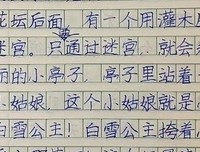 花坛后面，有一个用蘑木
迷宫。只通过迷宫，就会
丽的小亭子，亭子里站着
小姑娘，这个小姑娘就是
白雪公主！白雪公主挎着